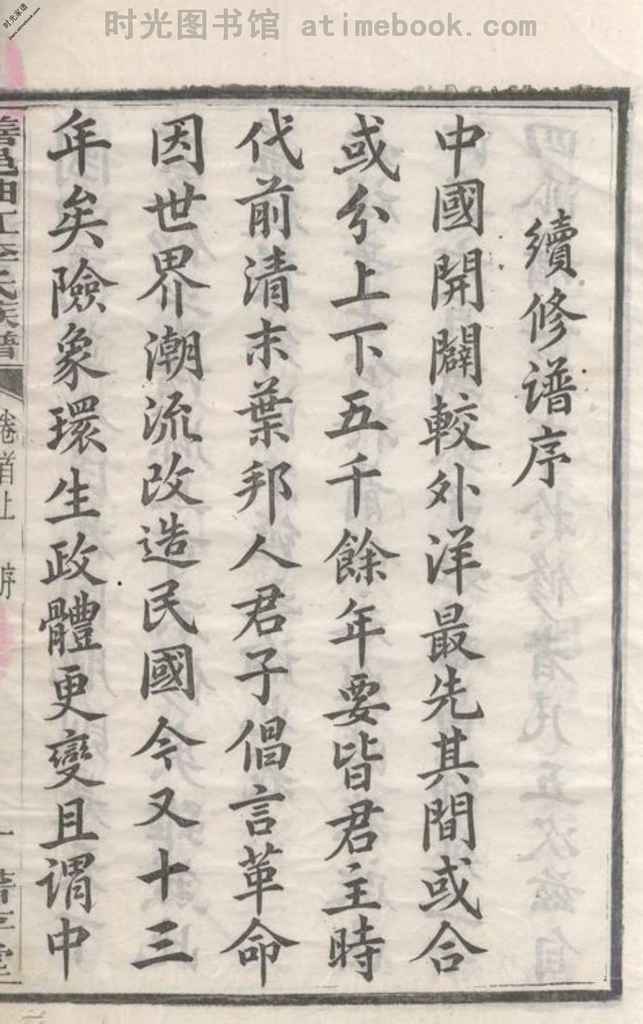 时光图书馆 atimebook.com
时光家谱
續修谱序
中國開闢較外洋最先其間或合
或分上下五千餘年要皆君主時
代前清末葉邦人君子倡言革命
因世界潮流改造民國今又十三
年矣險象環生政體更變且谓中
氏族譜
卷首上